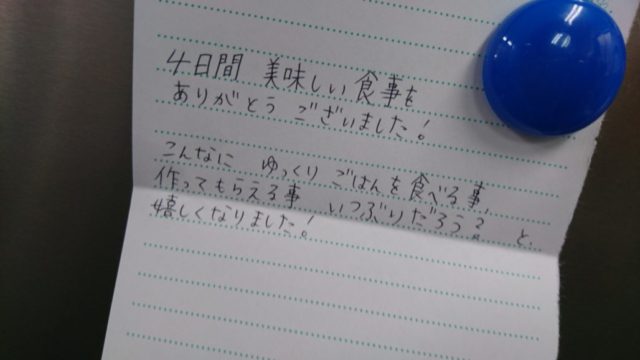 4日間 美味しい食事を
ありがとう ございました!
こんなに ゆっくり ごはんを食べる事、
作ってもらえる事 いつぶりだろう? と、
嬉しくなりました!